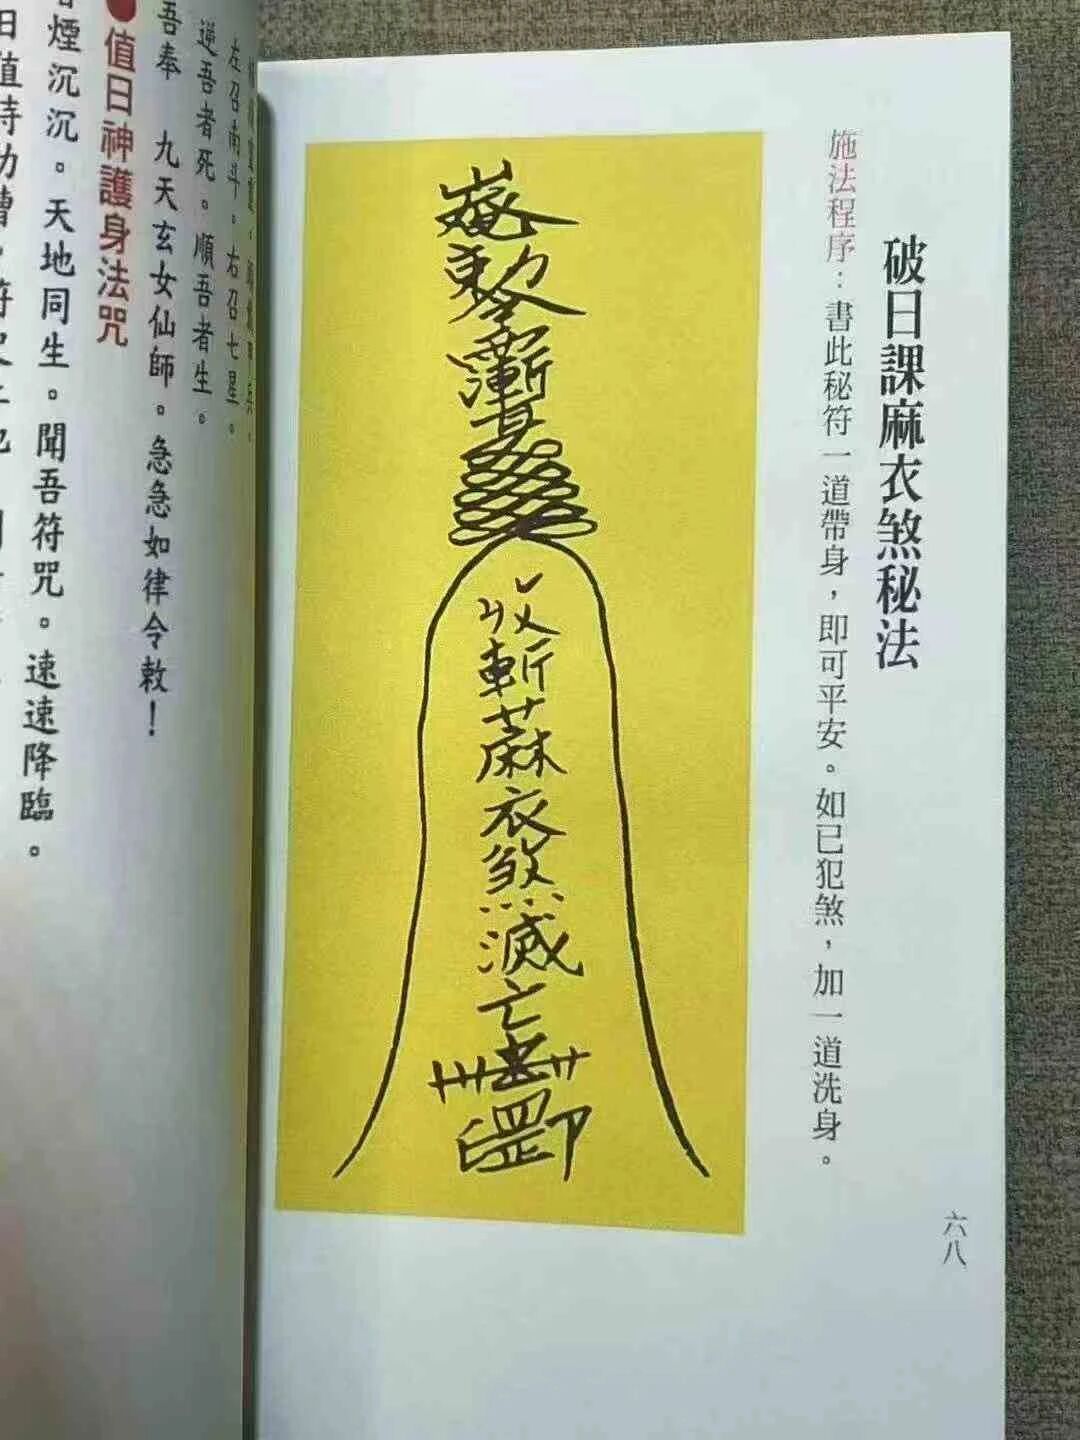 破日課麻衣煞秘法
施法程序：書此秘符一道帶身，即可平安。如已犯煞，加一道洗身。
敕令
收斬蔴衣煞滅亡
罡印
六八
左召南斗。右召七星。
逆吾者死。順吾者生。
吾奉　九天玄女仙師。急急如律令敕！
值日神護身法咒
煙沉沉。天地同生。聞吾符咒。速速降臨。